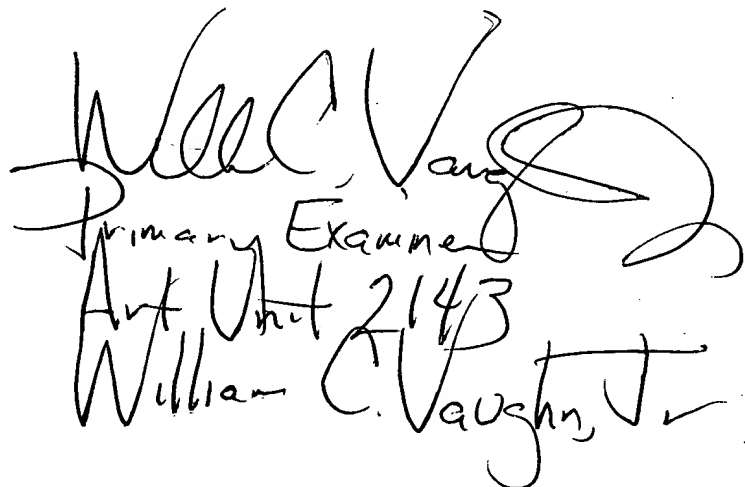 Will C. Vaug
Primary Examiner
Art Unit 2143
William C. Vaughn, Jr